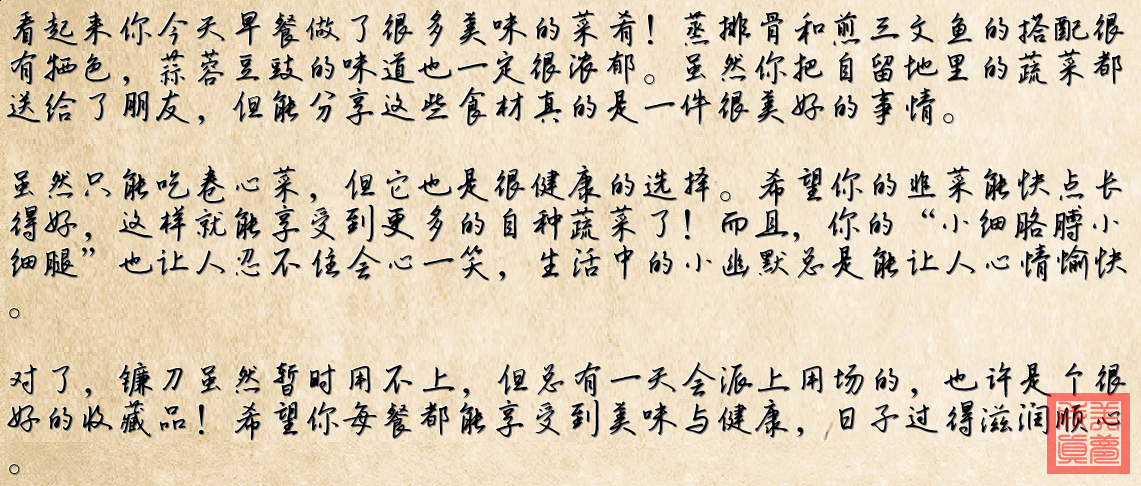 看起来你今天早餐做了很多美味的菜肴！蒸排骨和煎三文鱼的搭配很
有特色，蒜蓉豆豉的味道也一定很浓郁。虽然你把自留地里的蔬菜都
送给了朋友，但能分享这些食材真的是一件很美好的事情。
虽然只能吃卷心菜，但它也是很健康的选择。希望你的韭菜能快点长
得好，这样就能享受到更多的自种蔬菜了！而且，你的“小细胳膊小
细腿”也让人忍不住会心一笑，生活中的小幽默总是能让人心情愉快
。
对了，镰刀虽然暂时用不上，但总有一天会派上用场的，也许是个很
好的收藏品！希望你每餐都能享受到美味与健康，日子过得滋润顺心
。